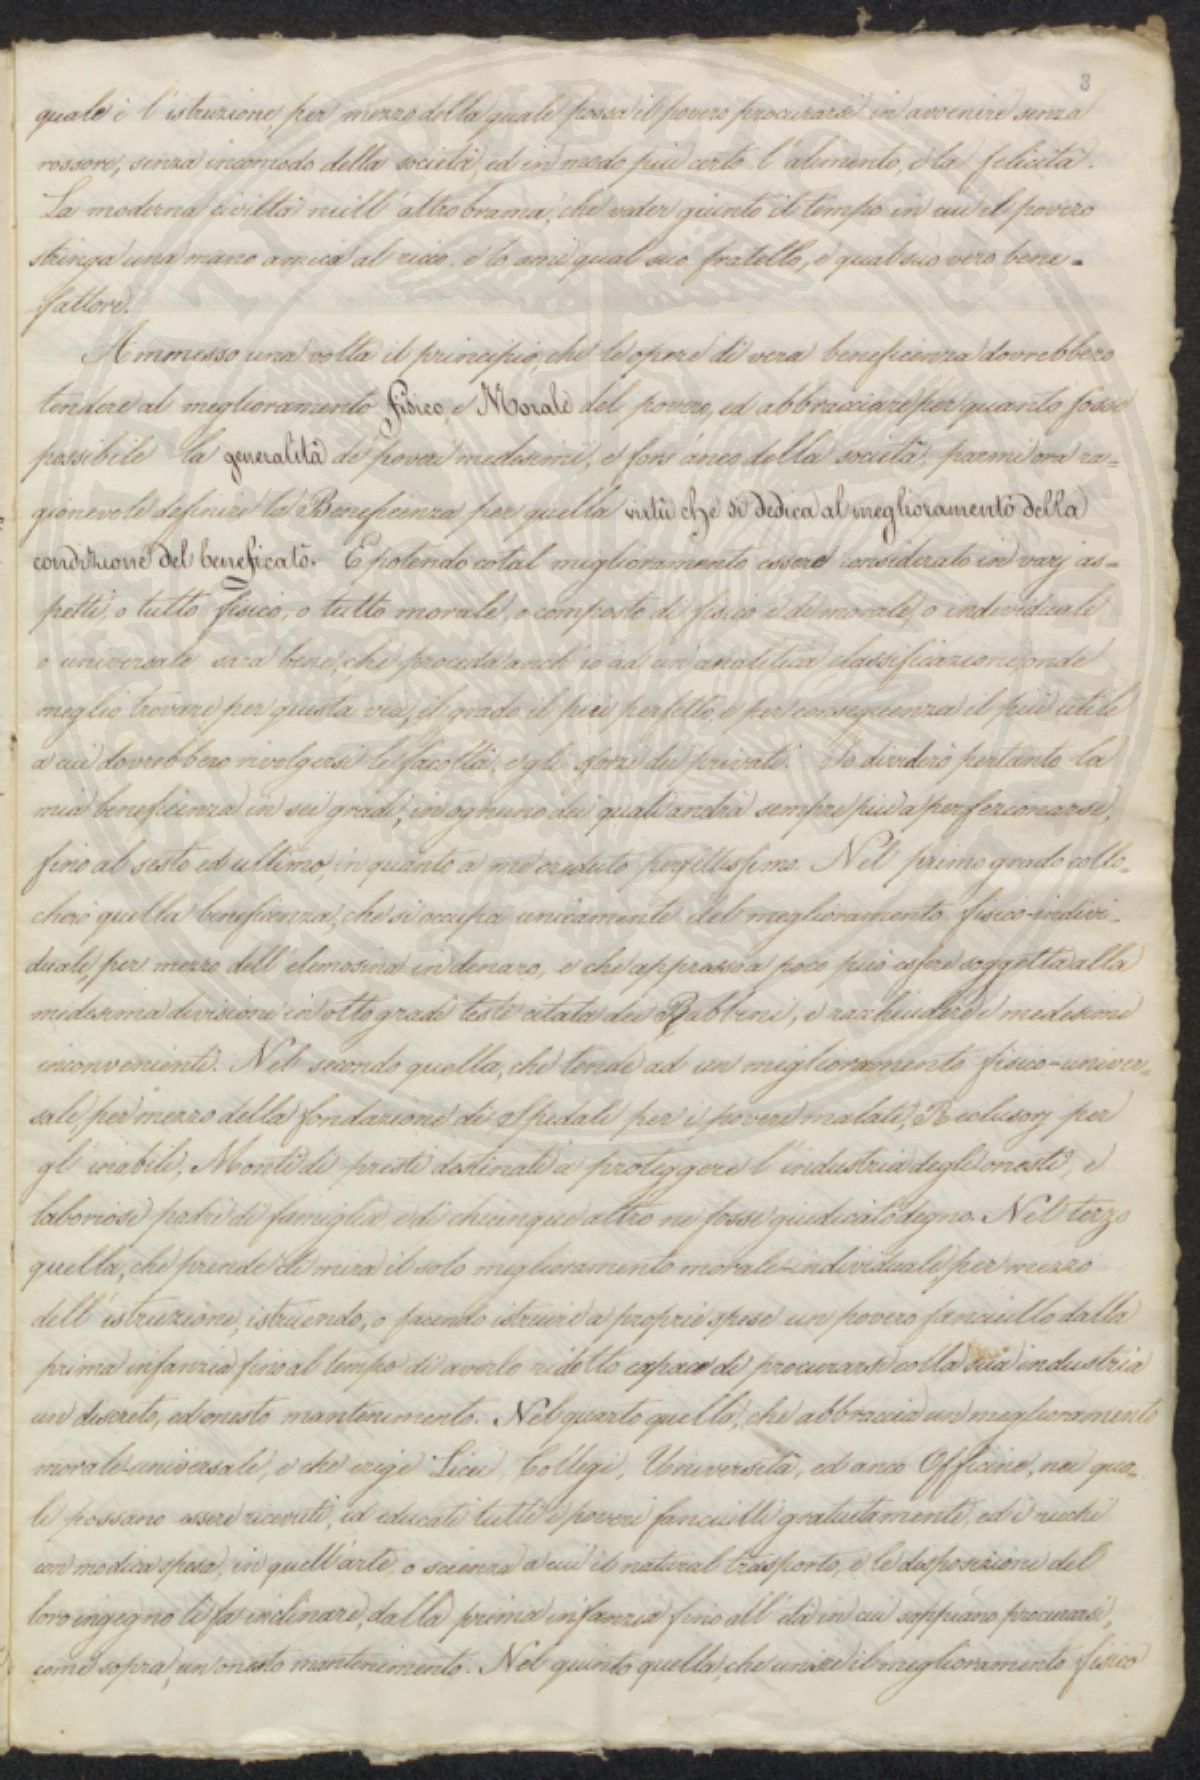 3
quale è l'istruzione, per mezzo della quale possa il povero procurarsi in avvenire senza
rossore, senza incomodo della società, ed in modo più certo l'alimento, e la felicità.
La moderna civiltà null'altro brama, che veder giunto il tempo in cui il povero
stringa una mano amica al ricco, e lo ami qual suo fratello, e qual suo vero bene=
fattore.
Ammesso una volta il principio, che le opere di vera beneficenza dovrebbero
tendere al meglioramento fisico, e Morale del povero, ed abbracciare per quanto fosse
possibile la generalità de' poveri medesimi, e fors'anco della società, parmi ora ra=
gionevole definire la Beneficenza per quella virtù che si dedica al meglioramento della
condizione del beneficato. E potendo cotal miglioramento essere considerato in varj as=
petti, o tutto fisico, o tutto morale, o composto di fisico e di morale, o individuale
o universale sarà bene, che proceda anch'io ad un'analitica classificazione onde
meglio trovare per questa via, il grado il più perfetto, e per conseguenza il più utile
a cui dovrebbero rivolgersi le facoltà, e gli sforzi dei privati. Io dividerò pertanto la
mia beneficenza in sei gradi, in ognuno dei quali andrà sempre più a perfezionarsi,
fino al sesto ed ultimo, in quanto a me creduto perfettissimo. Nel primo grado collo=
cherò quella beneficenza, che si occupa unicamente del meglioramento fisico-indivi=
duale, per mezzo dell'elemosina in denaro, e che appresso a poco può essere soggetta alla
medesima divisione in otto gradi testè citata dei Rabbini, e racchiudere i medesimi
inconvenienti. Nel secondo quella, che tende ad un miglioramento fisico-univer=
sale, per mezzo della fondazione di Spedali per i poveri malati, Reclusorj per
gl'inabili, Monti di presti destinati a proteggere l'industria degli onesti, e
laboriosi padri di famiglia, e di chiunque altro ne fosse giudicato degno. Nel terzo
quella, che prende di mira il solo miglioramento morale-individuale, per mezzo
dell'istruzione, istruendo, o facendo istruire a proprie spese un povero fanciullo dalla
prima infanzia fino al tempo di averlo ridotto capace di procurarsi colla sua industria
un discreto, ed onesto mantenimento. Nel quarto quella, che abbraccia un meglioramento
morale-universale, e che erige Licei, Collegi, Università, ed anco Officine, nei qua=
li possano essere ricevuti, ed educati tutti i poveri fanciulli gratuitamente, ed i ricchi
con modica spesa, in quell'arte, o scienza a cui il natural trasporto, e le disposizioni del
loro ingegno li fa inclinare, dalla prima infanzia fino all'età in cui sappiano procurarsi,
come sopra, un onesto mantenimento. Nel quinto quella, che unisce il meglioramento fisico